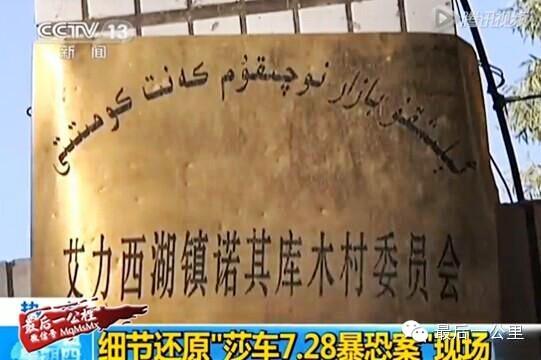 CCTV 13
新闻
腾讯视频
بازار نوچىقۇم كەنت كومىتېتى
艾力西湖镇诺其库木村委员会
最后一公里
微信号 MqMsMx
细节还原"莎车7.28暴恐案"现场
最后一公里